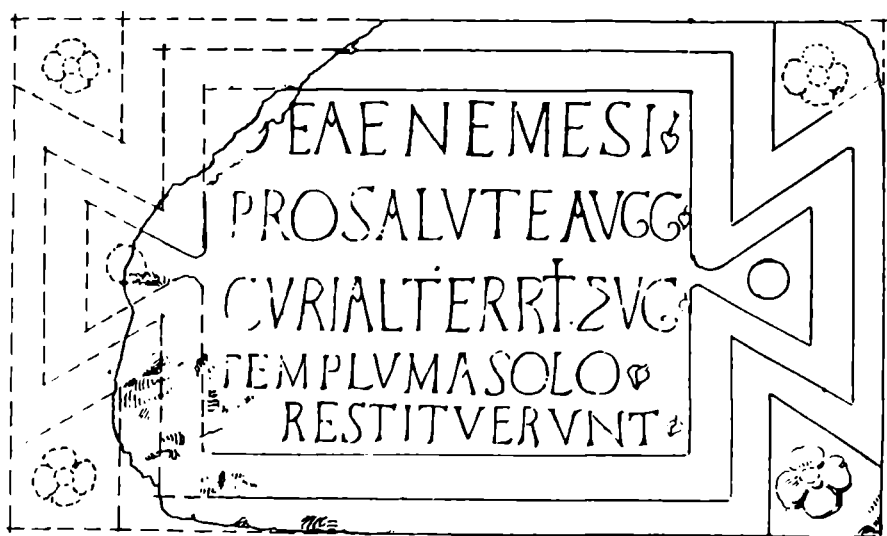 DEAENEMESI
PROSALVTEAVGG
CVRIALTERRIT·SVC
TEMPLVMASOLO
RESTITVERVNT